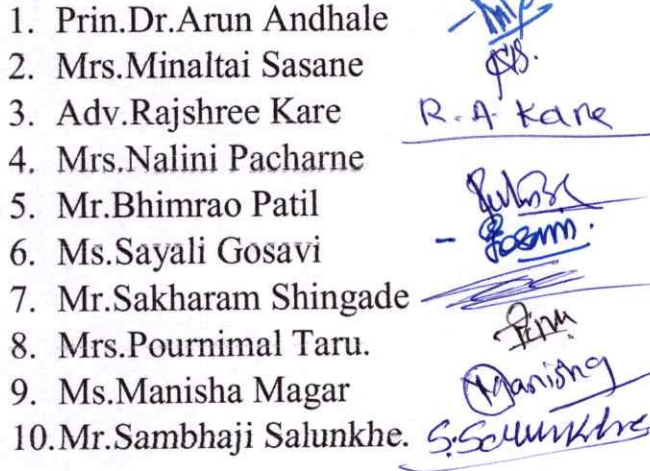 1. Prin.Dr.Arun Andhale
2. Mrs.Minaltai Sasane
3. Adv.Rajshree Kare R.A Kare
4. Mrs.Nalini Pacharne
5. Mr.Bhimrao Patil
6. Ms.Sayali Gosavi
7. Mr.Sakharam Shingade
8. Mrs.Pournimal Taru.
9. Ms.Manisha Magar Manisha
10.Mr.Sambhaji Salunkhe. S.Salunkhe